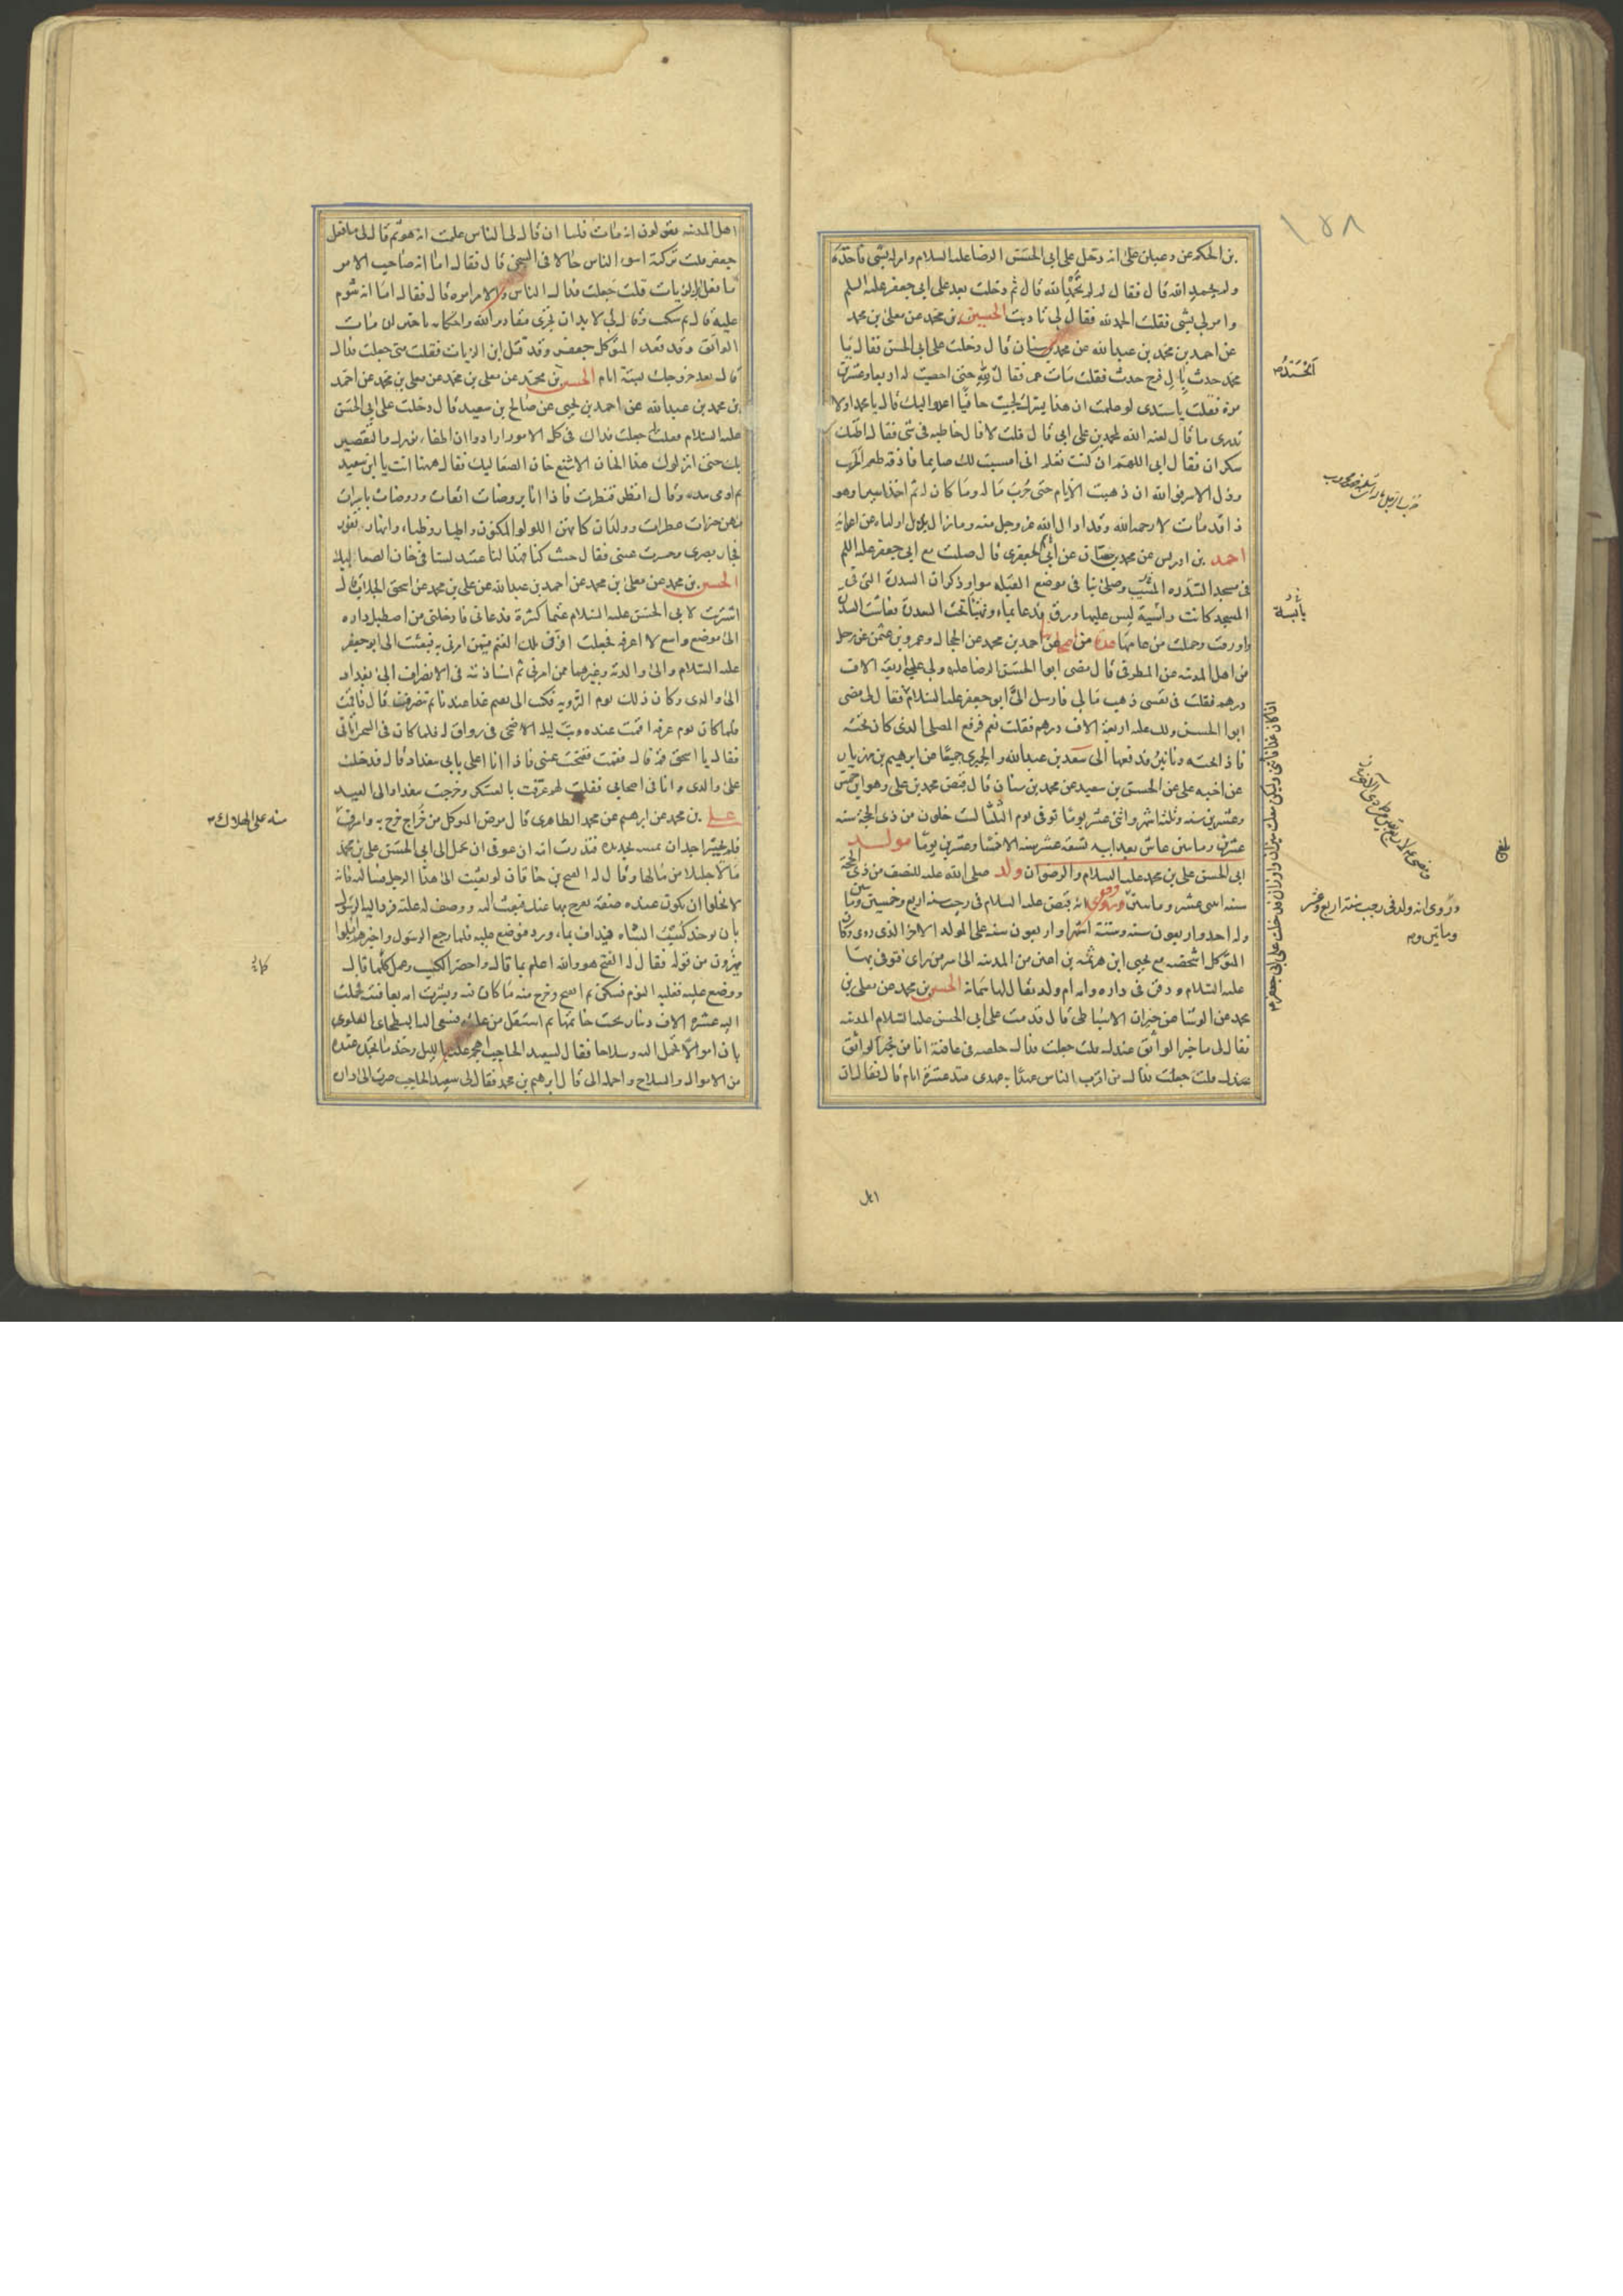 بن الحكم عن دعبل بن على انه دخل على ابى الحسن الرضا عليه السلام وامر له بشى فاخذه
ولم يحمد الله قال فقال له لم لم تحمد الله قال ثم دخلت بعد على ابى جعفر عليه السلم
وامر لى بشى فقلت الحمد لله فقال لى تادبت الحسين بن محمد عن معلى بن محمد
عن احمد بن محمد بن عبد الله عن محمد بن سنان قال دخلت على ابى الحسن فقال يا
محمد حدث بال فرج حدث فقلت مات عمر فقال الحمد لله حتى احصيت له اربعا وعشرين
مرة فقلت يا سيدى لو علمت ان هذا يسرك لجيت حافيا اعدوا اليك قال يا محمد اولا
تدرى ما قال لعنه الله لمحمد بن على ابى قال قلت لا قال خاطبه فى شى فقال اظنك
سكران فقال ابى اللهم ان كنت تعلم انى امسيت لك صايما فاذقه طعم الحرب
وذل الاسر فو الله ان ذهبت الايام حتى حرب ماله وما كان له ثم اخذ اسيرا وهو
ذا قد مات لا رحمه الله وقد ادال الله عز وجل منه وما زال يديل اولياءه من اعدائه
احمد بن ادريس عن محمد بن حسان عن ابى هاشم الجعفرى قال صليت مع ابى جعفر عليه السلم
فى مسجد السدره المسيب وصلى بنا فى موضع القبله سواء وذكر ان السدرة التى فى
المسجد كانت يابسة ليس عليها ورق فدعا بماء وتهيأ تحت السدرة فعاشت السدرة
واورقت وحملت من عامها عدة من اصحابنا عن احمد بن محمد عن الحجال وعمرو بن عثمن عن رجل
من اهل المدينه عن المطرفى قال مضى ابو الحسن الرضا عليه ولى عليه اربعة الاف
درهم فقلت فى نفسى ذهب مالى فارسل الى ابو جعفر عليه السلام فقال لى مضى
ابو الحسن ولك عليه اربعة الاف درهم فقلت نعم فرفع المصلى الذى كان تحته
فاذا تحته دنانير فدفعها الى سعد بن عبد الله والحميرى جميعا عن ابرهيم بن مهزيار
عن اخيه على عن الحسين بن سعيد عن محمد بن سنان قال قبض محمد بن على وهو ابن خمس
وعشرين سنه وثلثه اشهر واثنى عشر يوما توفى يوم الثلثا لست خلون من ذى الحجة سنه
عشرين وماتين عاش بعد ابيه تسعه عشر سنه الا خمسا وعشرين يوما مولد
ابى الحسن على بن محمد عليه السلام والرضوان ولد صلى الله عليه للنصف من ذى الحجة
سنه اثنى عشر وماتين وروى انه قبض عليه السلام فى رجب سنه اربع وخمسين وماتين
وله احد واربعون سنه وستة اشهر او اربعون سنه على المولد الاخر الذى روى وكان
المتوكل اشخصه مع يحيى ابن هرثمه بن اعين من المدينه الى سر من راى فتوفى بها
عليه السلام ودفن فى داره وامه ام ولد يقال لها سمانة الحسين بن محمد عن معلى بن
محمد عن الوشا عن خيران الاسباطى قال قدمت على ابى الحسن عليه السلام المدينه
فقال لى ما خبر الواثق عندك قلت جعلت فداك خلفته فى عافية انا من اقرب الواثق
عندك قلت جعلت فداك من اقرب الناس عهدا به عهدى منذ عشرة ايام قال فقال ان
الحمد لله
يابسة
وروى انه ولد فى رجب سنة اربع وعشر
وماتين وم
اهل
اهل المدينه يقولون انه مات فلما ان قال لى الناس علمت انه هو ثم قال لى ما فعل
جعفر قلت تركته اسوء الناس حالا فى السجن قال فقال اما انه صاحب الامر
ما فعل ابن الزيات قلت جعلت فداك الناس معه والامر امره قال فقال اما انه شوم
عليه قال ثم سكت وقال لى لا بد ان تجرى مقادير الله واحكامه يا خيران مات
الواثق وقد قعد المتوكل جعفر وقد قتل ابن الزيات فقلت متى جعلت فداك
قال بعد خروجك بستة ايام الحسين بن محمد عن معلى بن محمد عن معلى بن محمد عن احمد
بن محمد بن عبد الله عن احمد بن يحيى عن صالح بن سعيد قال دخلت على ابى الحسن
عليه السلام فقلت له جعلت فداك فى كل الامور ارادوا اطفاء نورك والتقصير
بك حتى انزلوك هذا الخان الاشنع خان الصعاليك فقال ههنا انت يا ابن سعيد
ثم اومى بيده وقال انظر فنظرت فاذا انا بروضات انقات وروضات باسرات
فيهن خيرات عطرات وولدان كانهن اللولو المكنون واطيار وظباء وانهار تفور
فحار بصرى وحسرت عينى فقال حيث كنا فهذا لنا عتيد لسنا فى خان الصعاليك
الحسين بن محمد عن معلى بن محمد عن احمد بن محمد بن عبد الله عن على بن محمد عن اسحق الجلاب قال
اشتريت لابى الحسن عليه السلام غنما كثيرة فدعانى فادخلنى من اصطبل داره
الى موضع واسع لا اعرفه فجعلت افرق تلك الغنم فيمن امرنى به فبعثت الى ابو جعفر
عليه السلام والى والدته وغيرهما ممن امرنى ثم استاذنته فى الانصراف الى بغداد
الى والدى وكان ذلك يوم التروية فكتب الى تقيم غدا عندنا ثم تنصرف قال فاقمت
فلما كان يوم عرفه اقمت عنده وبت ليلة الاضحى فى رواق له فلما كان فى السحر اتانى
فقال يا اسحق قم قال فقمت ففتحت عينى فاذا انا على بابى ببغداد قال فدخلت
على والدى وانا فى اصحابى فقلت لهم عرفت بالعسكر وخرجت ببغداد الى العيد
على بن محمد عن ابرهيم عن محمد الطاهرى قال مرض المتوكل من خراج خرج به واشرف
فلم يجسر احد ان يمسه بحديده فنذرت امه ان عوفى ان تحمل الى ابى الحسن على بن محمد
مالا جليلا من مالها وقال له الفتح بن خاقان لو بعثت الى هذا الرجل فسالته فانه
لا يخلو ان يكون عنده صفة يفرج بها عنك فبعث اليه ووصف له علته فرد اليه الرسول
بان يوخذ كسب الشاه فيداف بماء ورد فيوضع عليه فلما رجع الرسول واخبرهم اقبلوا
يهزون من قوله فقال له الفتح هو والله اعلم بما قال واحضر الكسب وعمل كما قال
ووضع عليه فغلبه النوم فسكن ثم انفتح وخرج منه ما كان فيه وبشرت امه بعافيته فحملت
اليه عشرة الاف دينار تحت خاتمها ثم استقل من علته فسعى اليه البطحاى العلوى
بان اموالا تحمل اليه وسلاحا فقال لسعيد الحاجب اهجم عليه بالليل وخذ ما تجد عنده
من الاموال والسلاح واحمله الى قال ابرهيم بن محمد فقال لى سعيد الحاجب صرت الى داره
منه على الهلاك